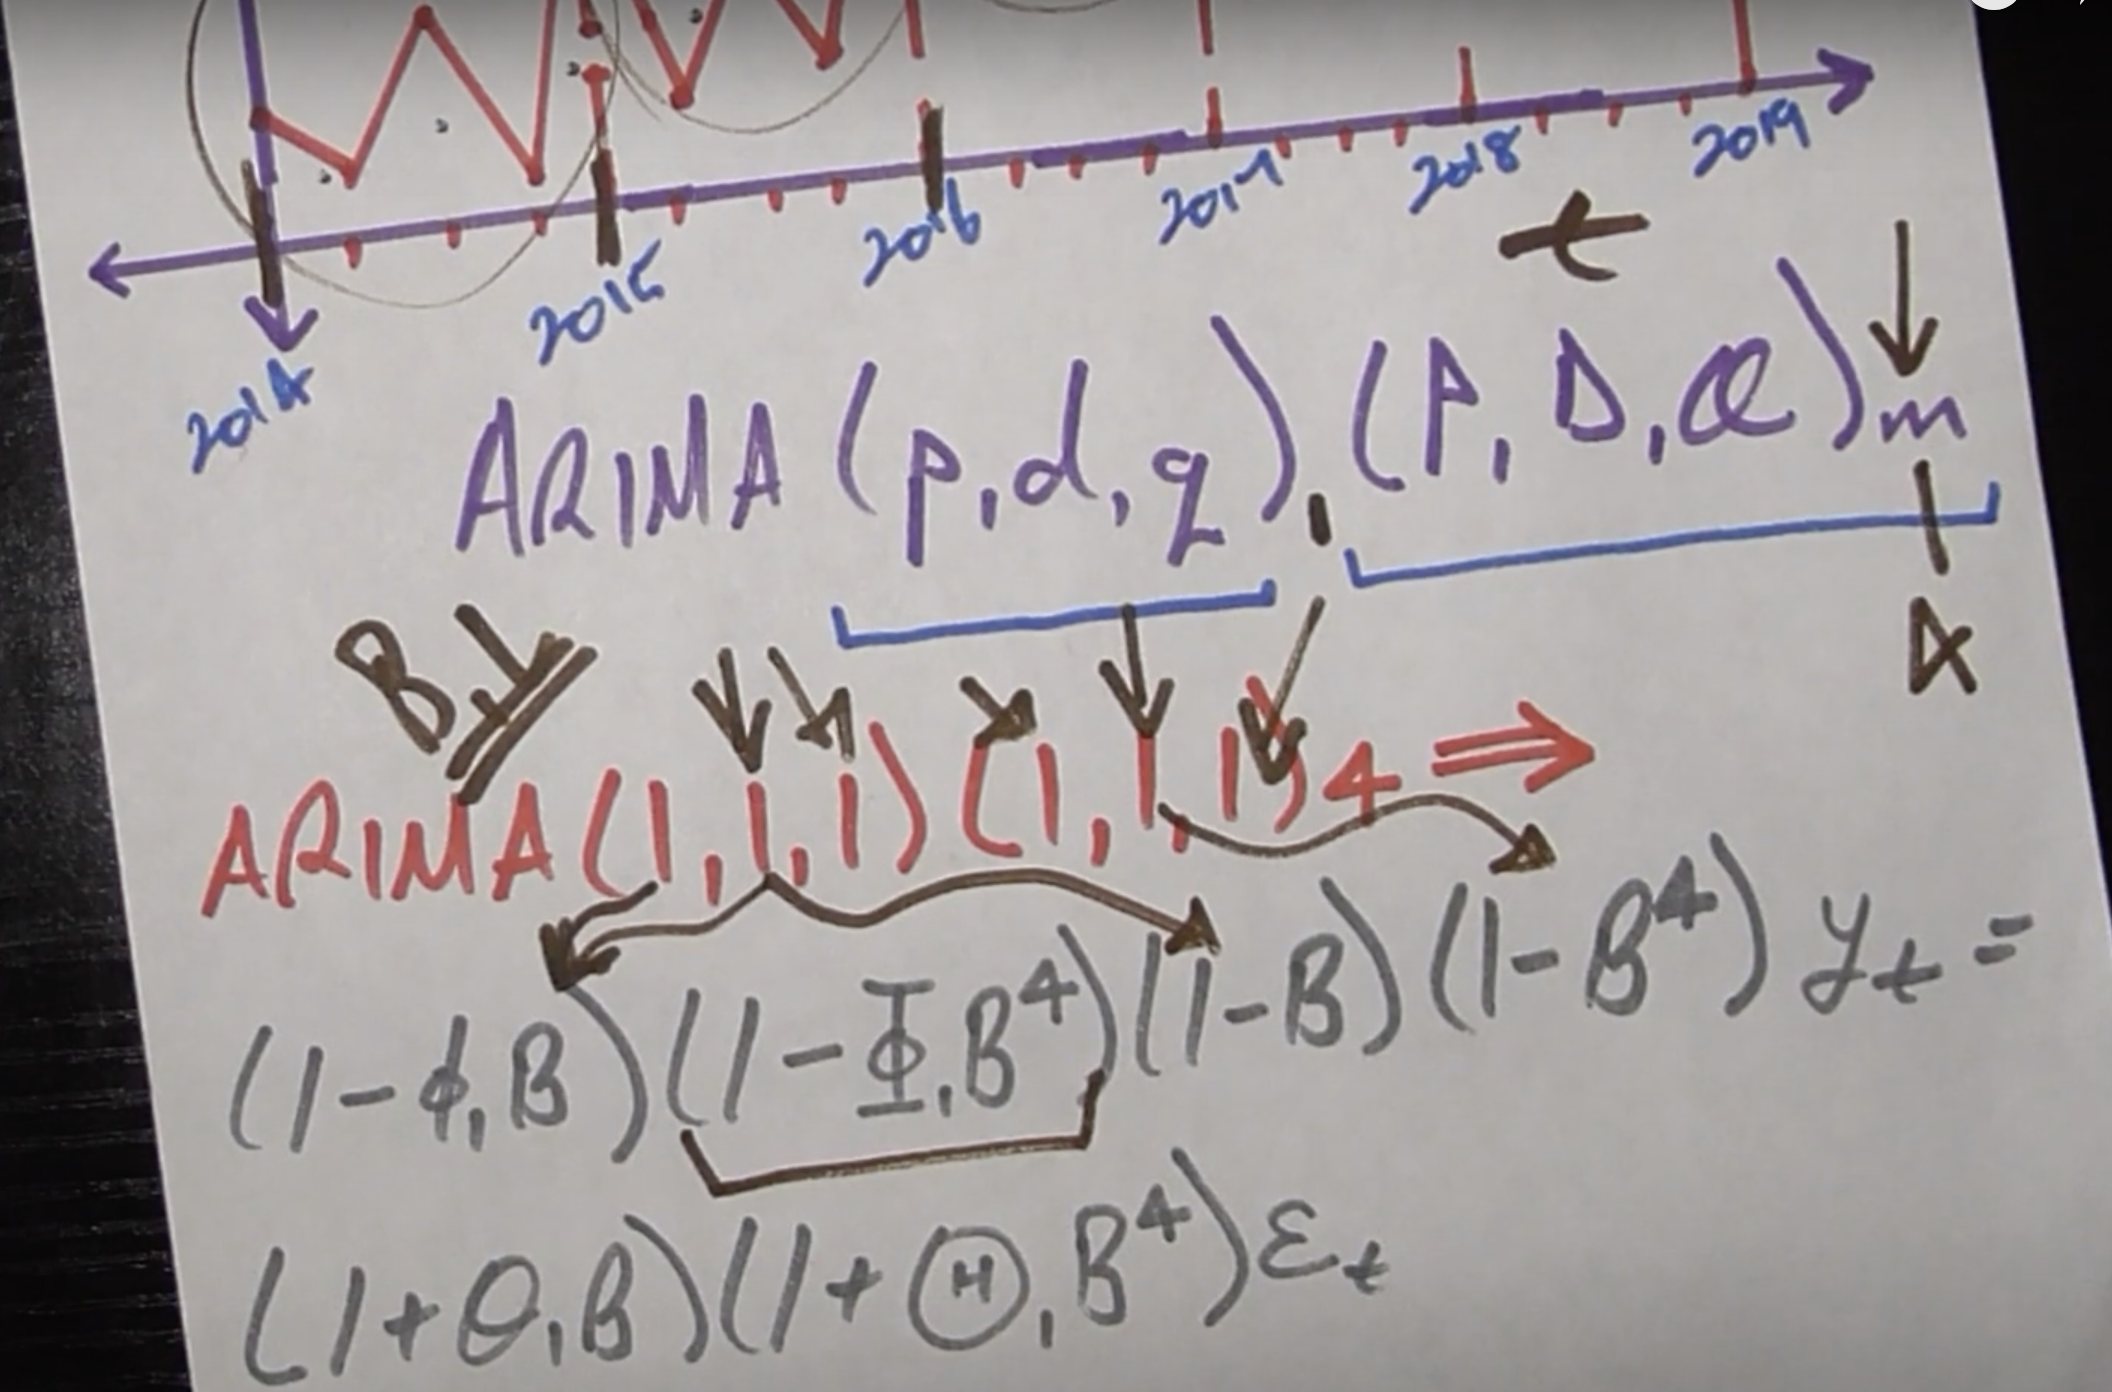 2014 2015 2016 2017 2018 2019
t
ARIMA (p,d,q), (P,D,Q)m
4
By
ARIMA(1,1,1)(1,1,1)4 ⇒
(1-ϕ₁B)(1-Φ₁B⁴)(1-B)(1-B⁴)yₜ =
(1+θ₁B)(1+Θ₁B⁴)εₜ